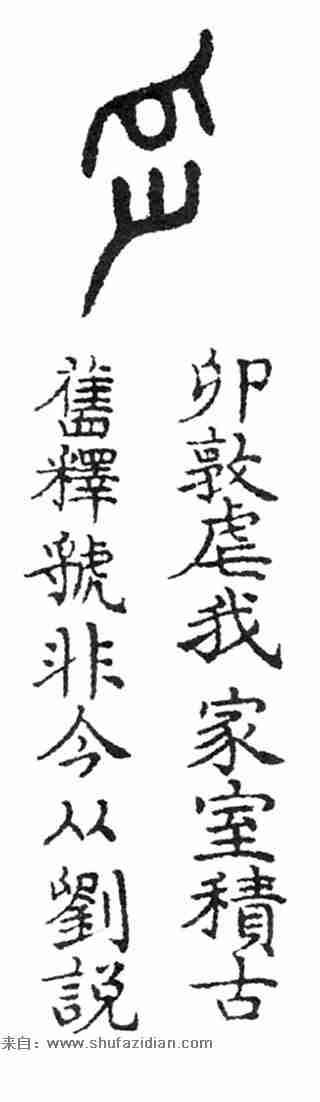 卯敦虐我家室積古
舊釋虢非今从劉説
来自：www.shufazidian.com